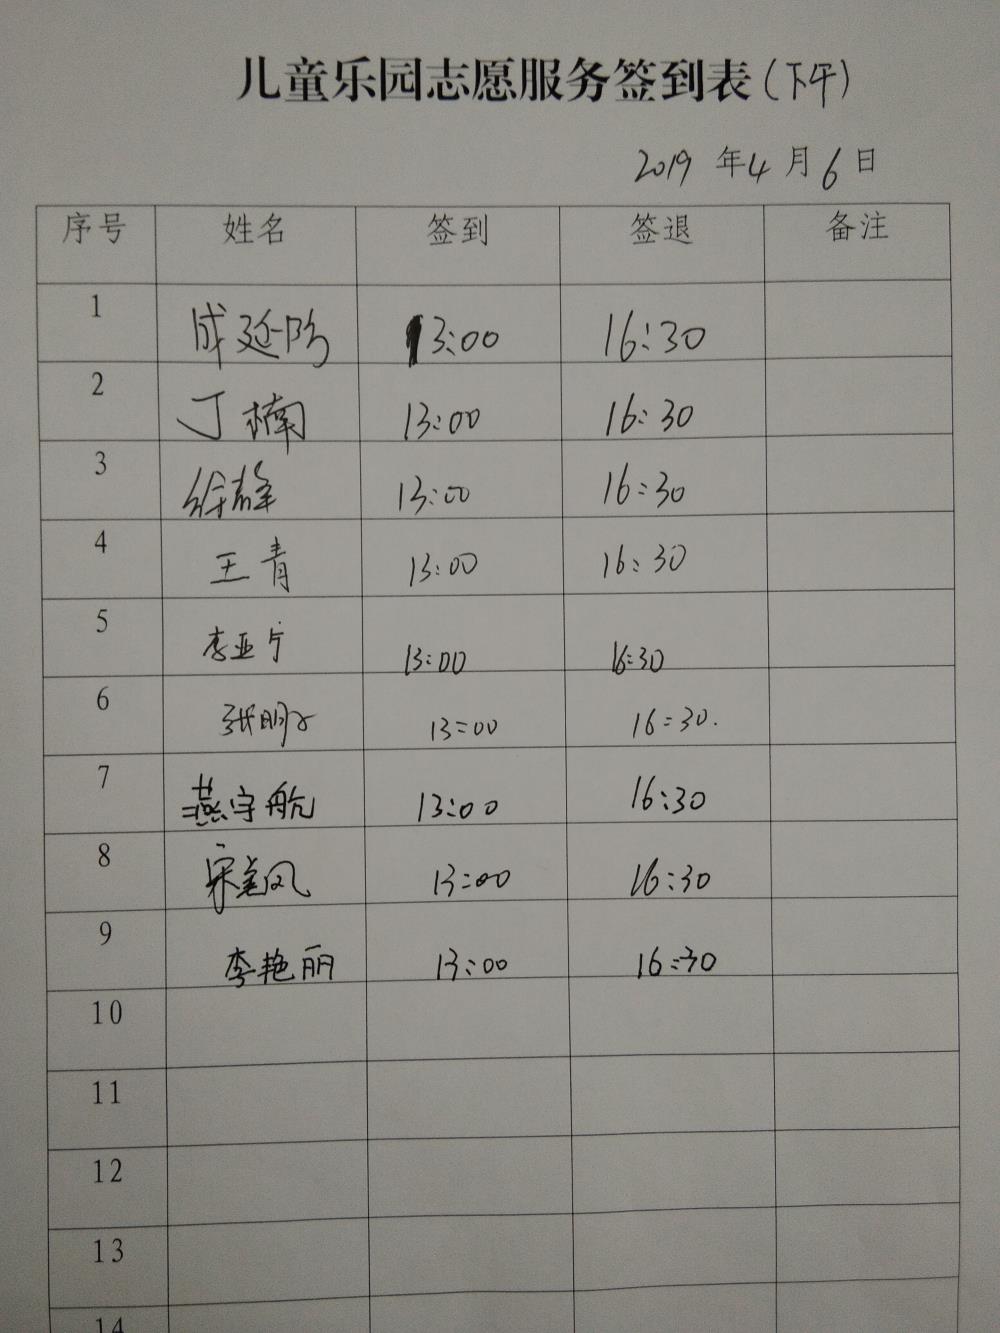 儿童乐园志愿服务签到表(下午)
2019 年 4 月 6 日
序号 姓名 签到 签退 备注
1 成延 13:00 16:30
2 丁楠 13:00 16:30
3 徐 13:00 16:30
4 王青 13:00 16:30
5 李亚 13:00 16:30
6 张明 13:00 16:30.
7 燕宇航 13:00 16:30
8 宋 13:00 16:30
9 李艳丽 13:00 16:30
10
11
12
13
14